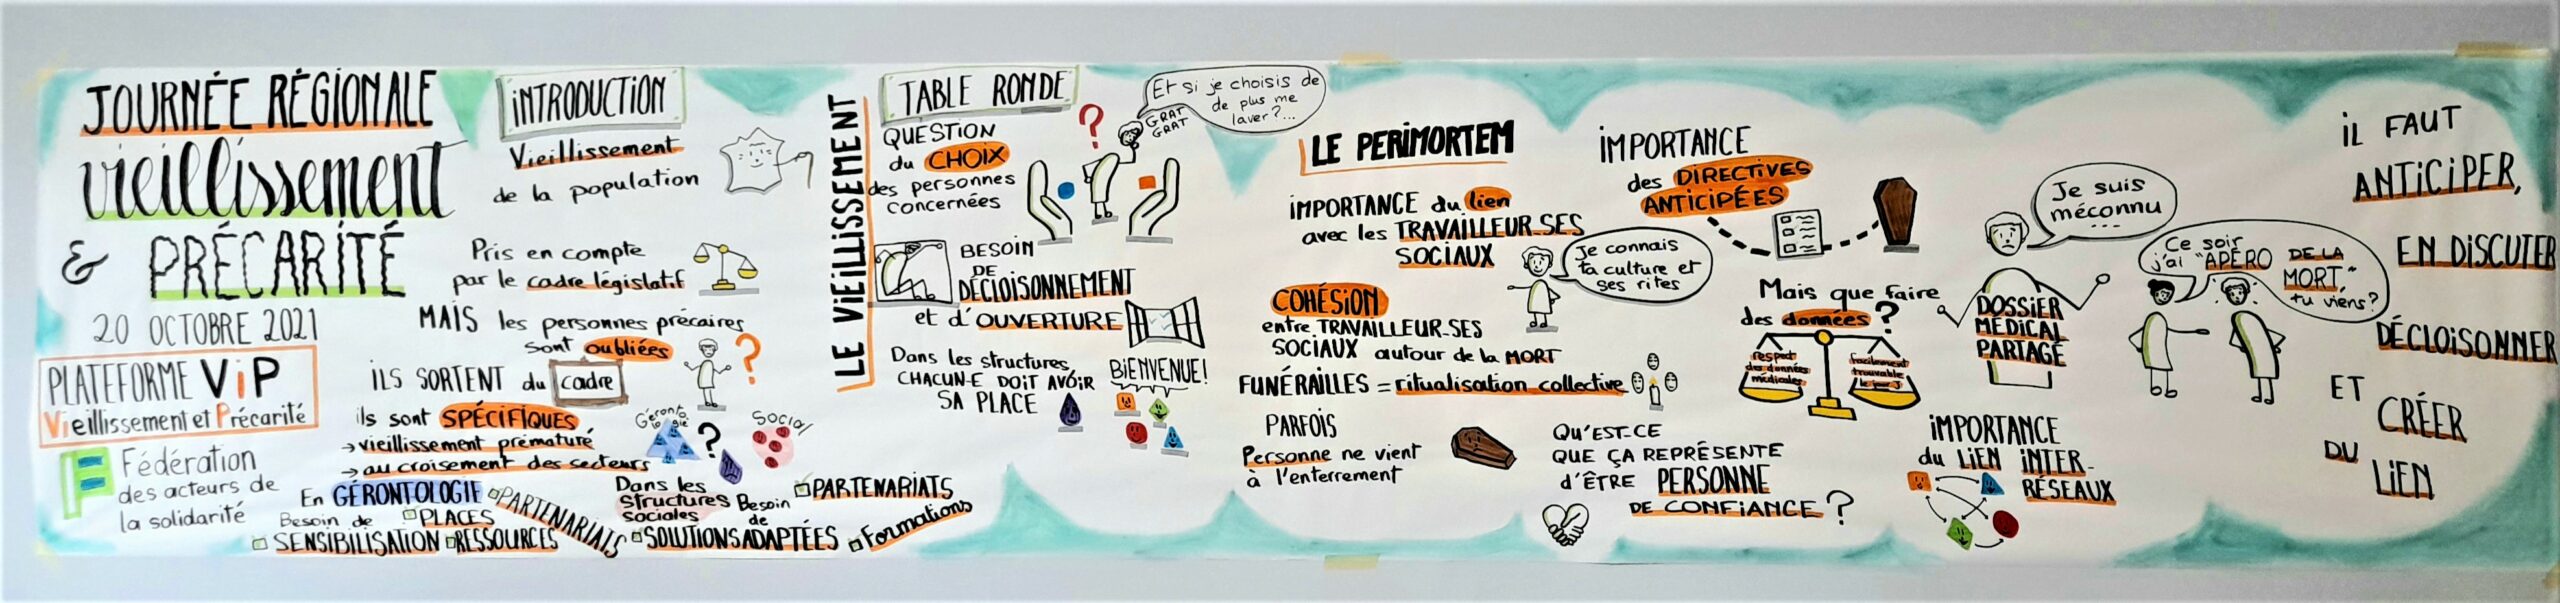 JOURNÉE RÉGIONALE
vieillissement
& PRÉCARITÉ
20 OCTOBRE 2021
PLATEFORME ViP
Vieillissement et Précarité
Fédération
des acteurs de
la solidarité
INTRODUCTION
Vieillissement
de la population
Pris en compte
par le cadre législatif
MAIS les personnes précaires
sont oubliées
ILS SORTENT du cadre
ils sont SPÉCIFIQUES
→ vieillissement prématuré
→ au croisement des secteurs
Géronto
logie
?
Social
En GÉRONTOLOGIE
Besoin de
PLACES
PARTENARIATS
SENSIBILISATION
RESSOURCES
Dans les
structures
sociales
Besoin
de
PARTENARIATS
SOLUTIONS ADAPTÉES
Formations
LE VIEILLISSEMENT
TABLE RONDE
QUESTION
du CHOIX
des personnes
concernées
?
GRAT
GRAT
Et si je choisis de
de plus me
laver ?...
BESOIN
DE
DÉCLOISONNEMENT
et d'OUVERTURE
Dans les structures,
CHACUN·E DOIT AVOIR
SA PLACE
BIENVENUE!
LE PERIMORTEM
IMPORTANCE du lien
avec les TRAVAILLEUR·SES
SOCIAUX
Je connais
ta culture et
ses rites
COHÉSION
entre TRAVAILLEUR·SES
SOCIAUX autour de la MORT
FUNÉRAILLES = ritualisation collective
PARFOIS
Personne ne vient
à l'enterrement
IMPORTANCE
des DIRECTIVES
ANTICIPÉES
Mais que faire
des données ?
respect
des données
médicales
facilement
trouvable
le jour J
QU'EST-CE
QUE ÇA REPRÉSENTE
d'ÊTRE PERSONNE
DE CONFIANCE ?
Je suis
méconnu
...
DOSSIER
MÉDICAL
PARTAGÉ
Ce soir
j'ai "APÉRO DE LA
MORT",
tu viens?
IMPORTANCE
du LIEN INTER-
RÉSEAUX
IL FAUT
ANTICIPER,
EN DISCUTER
DÉCLOISONNER
ET
CRÉER
DU
LIEN